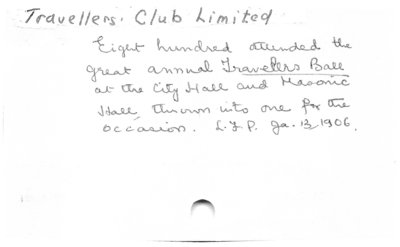 Travellers. Club Limited
Eight hundred attended the
great annual Travellers Ball
at the City Hall and Masonic
Hall, thrown into one for the
occasion. L.F.P. Ja. 13, 1906.